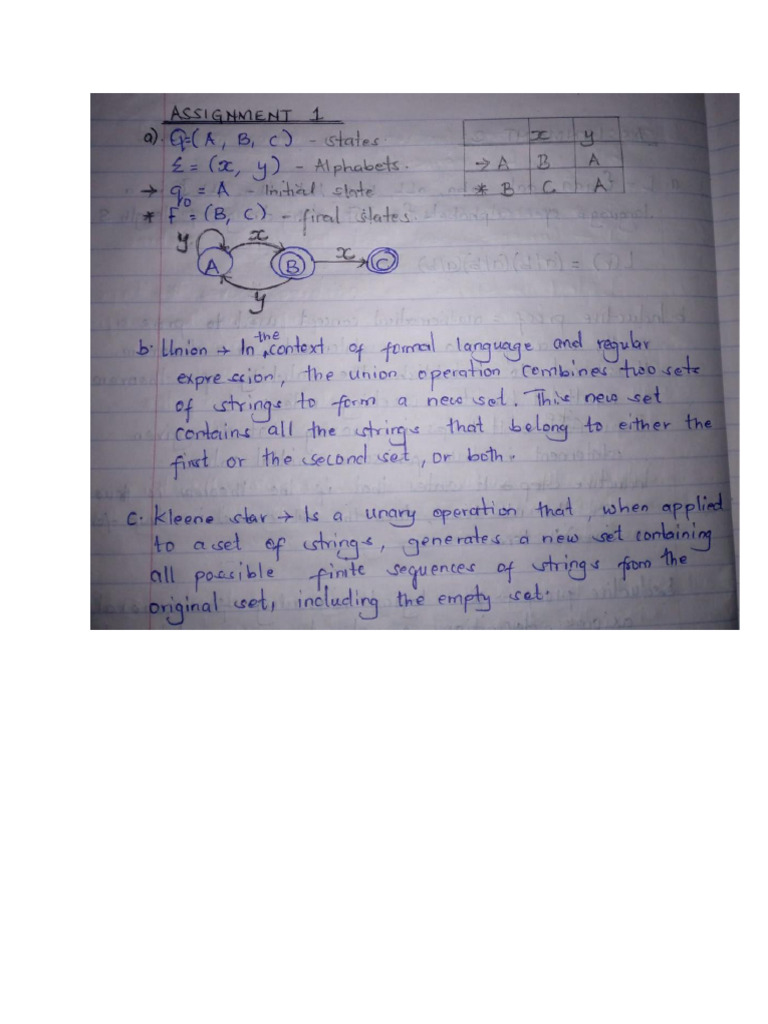 ASSIGNMENT 1
a) Q=(A, B, C) - states.
Σ = (x, y) - Alphabets.
→ q0 = A - Initial state
* F = (B, C) - final states.
x y
→ A B A
* B C A
y x x
A B C
y
b. Union → In the context of formal language and regular
expression, the union operation combines two sets
of strings to form a new set. This new set
contains all the strings that belong to either the
first or the second set, or both.
c. Kleene star → Is a unary operation that, when applied
to a set of strings, generates a new set containing
all possible finite sequences of strings from the
original set, including the empty set.